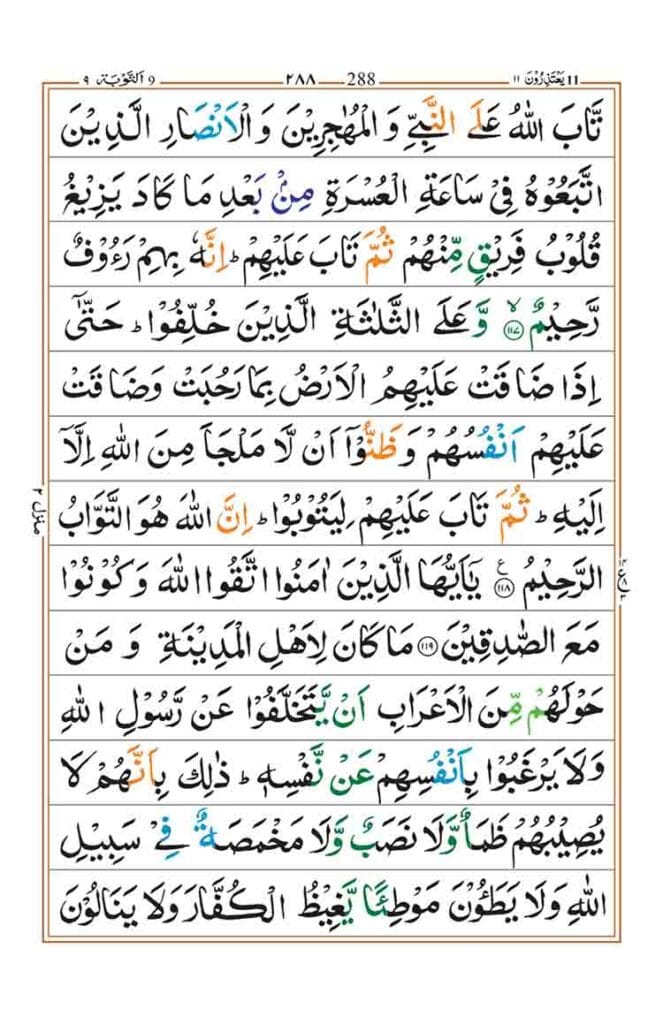 يَعْتَذِرُوْنَ ١١ 11 288 ٢٨٨ اَلتَّوْبَة ٩ 9
لَقَدْ تَّابَ اللّٰهُ عَلَى النَّبِىِّ وَالْمُهٰجِرِيْنَ وَالْاَنْصَارِ الَّذِيْنَ
اتَّبَعُوْهُ فِىْ سَاعَةِ الْعُسْرَةِ مِنْۢ بَعْدِ مَا كَادَ يَزِيْغُ
قُلُوْبُ فَرِيْقٍ مِّنْهُمْ ثُمَّ تَابَ عَلَيْهِمْ ؕ اِنَّهٗ بِهِمْ رَءُوْفٌ
رَّحِيْمٌ ۙ‏﴿۱۱۷﴾ وَّعَلَى الثَّلٰثَةِ الَّذِيْنَ خُلِّفُوْا ؕ حَتّٰۤى
اِذَا ضَاقَتْ عَلَيْهِمُ الْاَرْضُ بِمَا رَحُبَتْ وَضَاقَتْ
عَلَيْهِمْ اَنْفُسُهُمْ وَظَنُّوْۤا اَنْ لَّا مَلْجَاَ مِنَ اللّٰهِ اِلَّاۤ
اِلَيْهِ ؕ ثُمَّ تَابَ عَلَيْهِمْ لِيَتُوْبُوْا ؕ اِنَّ اللّٰهَ هُوَ التَّوَّابُ
الرَّحِيْمُ ﴿۱۱۸﴾ ع يٰۤاَيُّهَا الَّذِيْنَ اٰمَنُوا اتَّقُوا اللّٰهَ وَكُوْنُوْا
مَعَ الصّٰدِقِيْنَ ﴿۱۱۹﴾ مَا كَانَ لِاَهْلِ الْمَدِيْنَةِ وَمَنْ
حَوْلَهُمْ مِّنَ الْاَعْرَابِ اَنْ يَّتَخَلَّفُوْا عَنْ رَّسُوْلِ اللّٰهِ
وَلَا يَرْغَبُوْا بِاَنْفُسِهِمْ عَنْ نَّفْسِهٖ ؕ ذٰلِكَ بِاَنَّهُمْ لَا
يُصِيْبُهُمْ ظَمَاٌ وَّلَا نَصَبٌ وَّلَا مَخْمَصَةٌ فِىْ سَبِيْلِ
اللّٰهِ وَلَا يَطَئُوْنَ مَوْطِئًا يَّغِيْظُ الْكُفَّارَ وَلَا يَنَالُوْنَ
منزل ۲